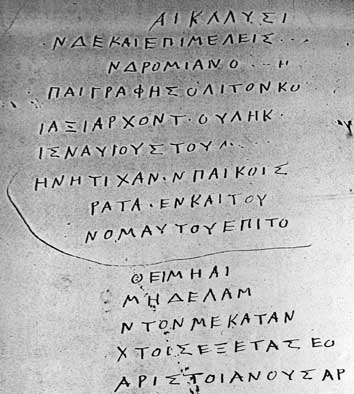 ΑΙΚΛΛΥΣΙ
·ΝΔΕΚΑΙΕΠΙΜΕΛΕΙΣ...
ΝΔΡΟΜΙΑΝΟ..Η
ΠΑΙΓΡΑΦΗΣΟΛΙΤΟΝΚΟ
ΙΑΞΙΑΡΧΟΝΤ.ΟΥΛΗΚ.
ΙΣΝΑΥΙΟΥΣΤΟΥΛ...
ΗΝΗΤΙΧΑΝ.ΝΠΑΙΚΟΙΣ
ΡΑΤΑ.ΕΝΚΑΙΤΟΥ
ΝΟΜΑΥΤΟΥΕΠΙΤΟ
ΘΕΙΜΗΑΙ
ΜΗΔΕΛΑΜ
ΝΤΟΝΜΕΚΑΤΑΝ
ΧΤΟΙΣΕΞΕΤΑΣΕΟ
ΑΡΙΣΤΟΙΑΝΟΥΣΑΡ